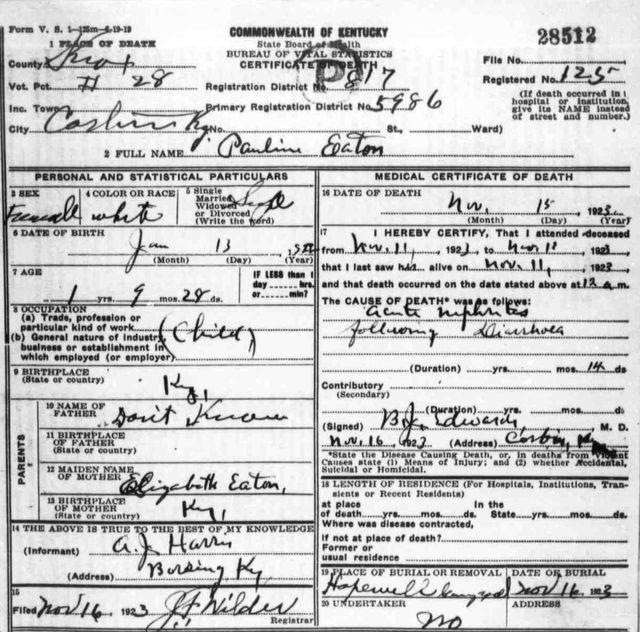 Form V. S. 1-125m-6-19-19
COMMONWEALTH OF KENTUCKY
State Board of Health
BUREAU OF VITAL STATISTICS
CERTIFICATE OF DEATH
28512
1 PLACE OF DEATH
County Knox
Vot. Pct. # 28
Registration District No. 817
File No.
Registered No. 125
Inc. Town
Primary Registration District No. 5986
(If death occurred in a hospital or institution, give its NAME instead of street and number.)
City Corbin Ky
No. St., Ward)
2 FULL NAME Pauline Eaton
PERSONAL AND STATISTICAL PARTICULARS
3 SEX Femall
4 COLOR OR RACE white
5 Single Married Widowed or Divorced (Write the word) Single
6 DATE OF BIRTH
Jan 13
(Month) (Day) (Year)
7 AGE
1 yrs. 9 mos. 28 ds.
IF LESS than 1 day ---- hrs. or ---- min.?
8 OCCUPATION
(a) Trade, profession or particular kind of work
(b) General nature of industry, business or establishment in which employed (or employer)
(Child)
9 BIRTHPLACE
(State or country) Ky,
PARENTS
10 NAME OF FATHER Don't Know
11 BIRTHPLACE OF FATHER
(State or country)
12 MAIDEN NAME OF MOTHER Elizabeth Eaton,
13 BIRTHPLACE OF MOTHER
(State or country) Ky,
14 THE ABOVE IS TRUE TO THE BEST OF MY KNOWLEDGE
(Informant) A. J. Harris
(Address) Ky,
15
Filed Nov 16 1923 J. F. Wilder
Registrar
MEDICAL CERTIFICATE OF DEATH
16 DATE OF DEATH
Nov. 1923
(Month) (Day) (Year)
17 I HEREBY CERTIFY, That I attended deceased
from Nov. 11, 1923 to Nov 1923
that I last saw h alive on Nov. 11, 1923
and that death occurred on the date stated above at 12 a.m.
The CAUSE OF DEATH* was as follows:
acute nephrites
following Diarrhoea
(Duration) yrs. mos. 14 ds.
Contributory
(Secondary)
(Duration) yrs. mos. ds.
(Signed) B. J. Edwards M. D.
Nov. 16 1923 (Address) Corbin, Ky
*State the Disease Causing Death, or, in deaths from Violent Causes state (1) Means of Injury; and (2) whether Accidental, Suicidal or Homicidal.
18 LENGTH OF RESIDENCE (For Hospitals, Institutions, Transients or Recent Residents)
at place of death yrs. mos. ds.
In the State yrs. mos. ds.
Where was disease contracted,
If not at place of death?
Former or usual residence
19 PLACE OF BURIAL OR REMOVAL
Hopewell
DATE OF BURIAL
Nov 16, 1923
20 UNDERTAKER
NO
ADDRESS